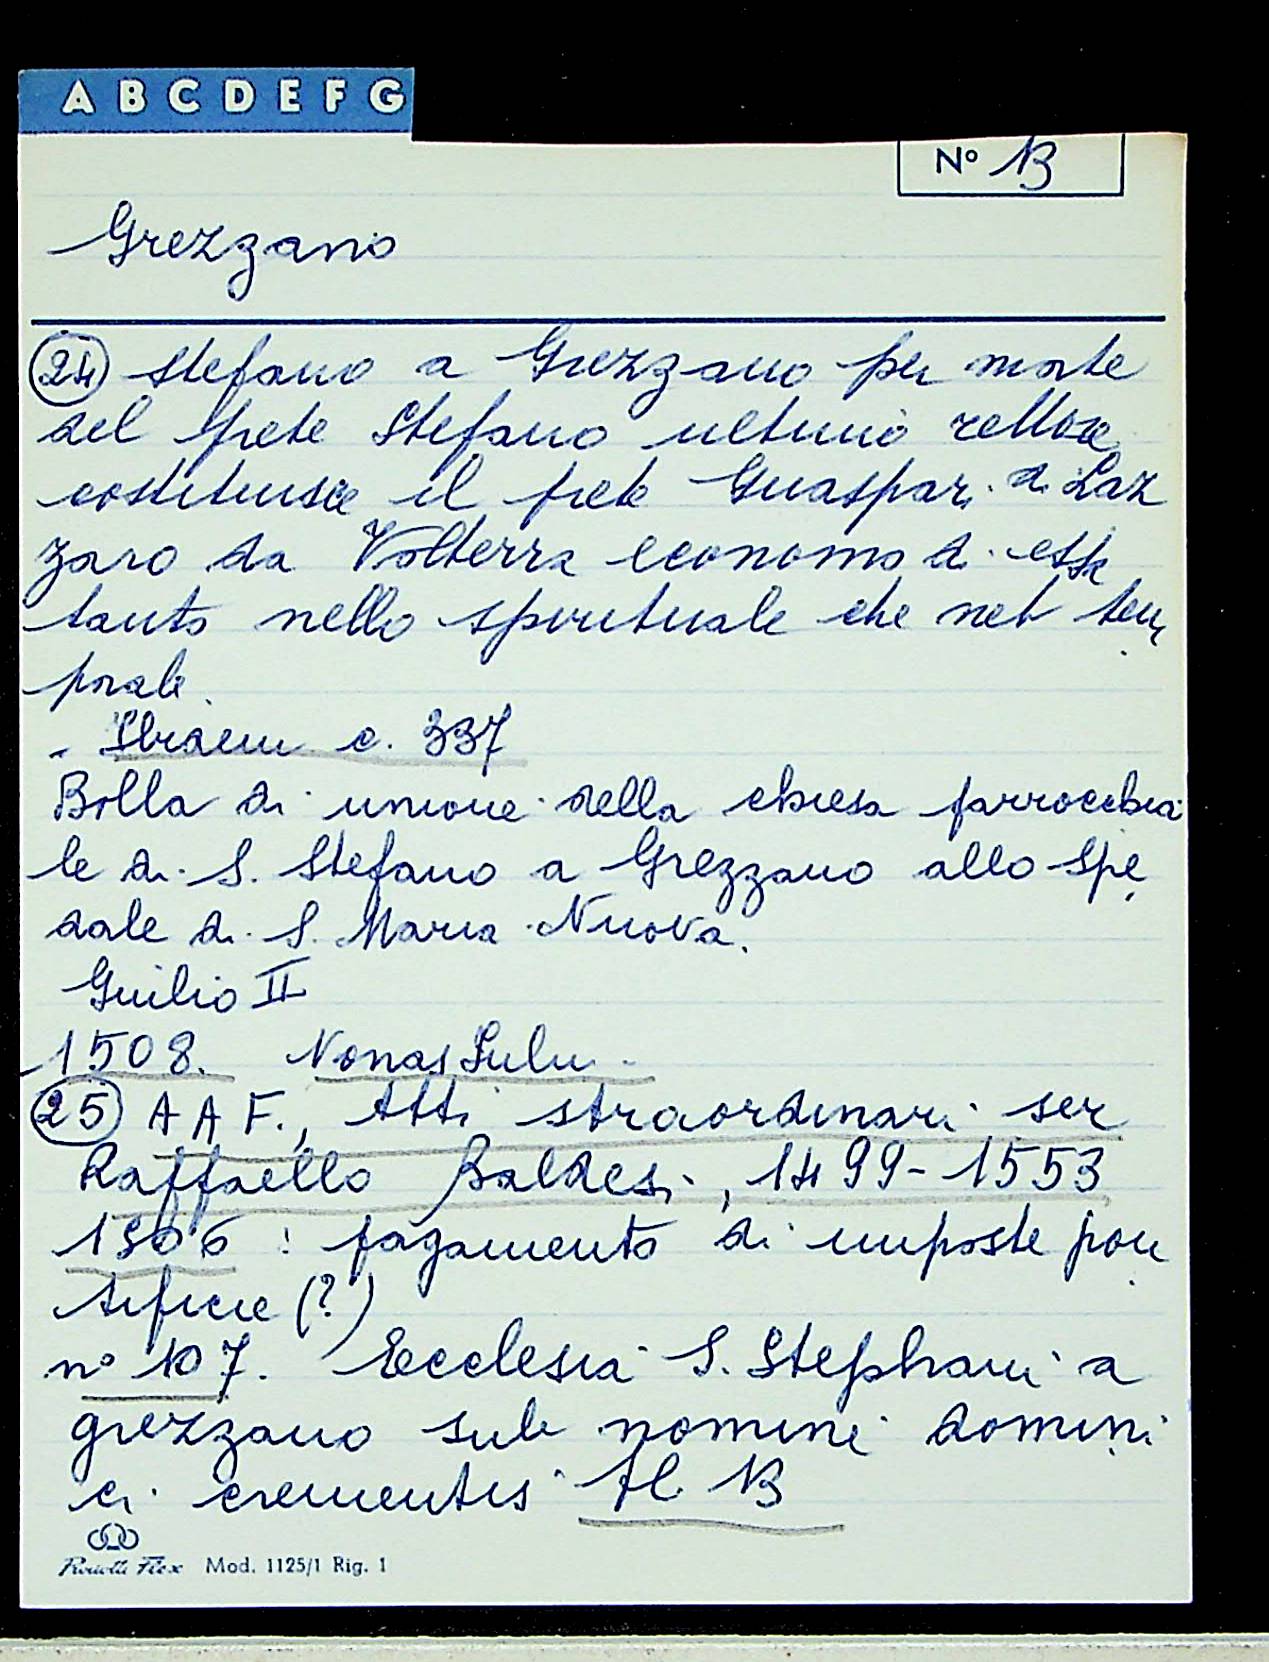 A B C D E F G
N° 13
Grezzano
24 Stefano a Grezzano per morte
del prete Stefano ultimo rettore
costituisce il prete Guaspari di Laz
zaro da Volterra economo di essa
tanto nello spirituale che nel tem
porale.
- Ibidem c. 337
Bolla di unione della chiesa parrocchia
le di S. Stefano a Grezzano allo Spe
dale di S. Maria Nuova.
Guilio II
1508. Nonas Sulu
25 A A F., Atti straordinari ser
Raffaello Baldesi, 1499-1553
1506 : pagamento di imposte pon
tificie (?)
n° 107. Ecclesia S. Stephani a
grezzano sub nomine domini
ci crementis fl 13
Mod. 1125/1 Rig. 1